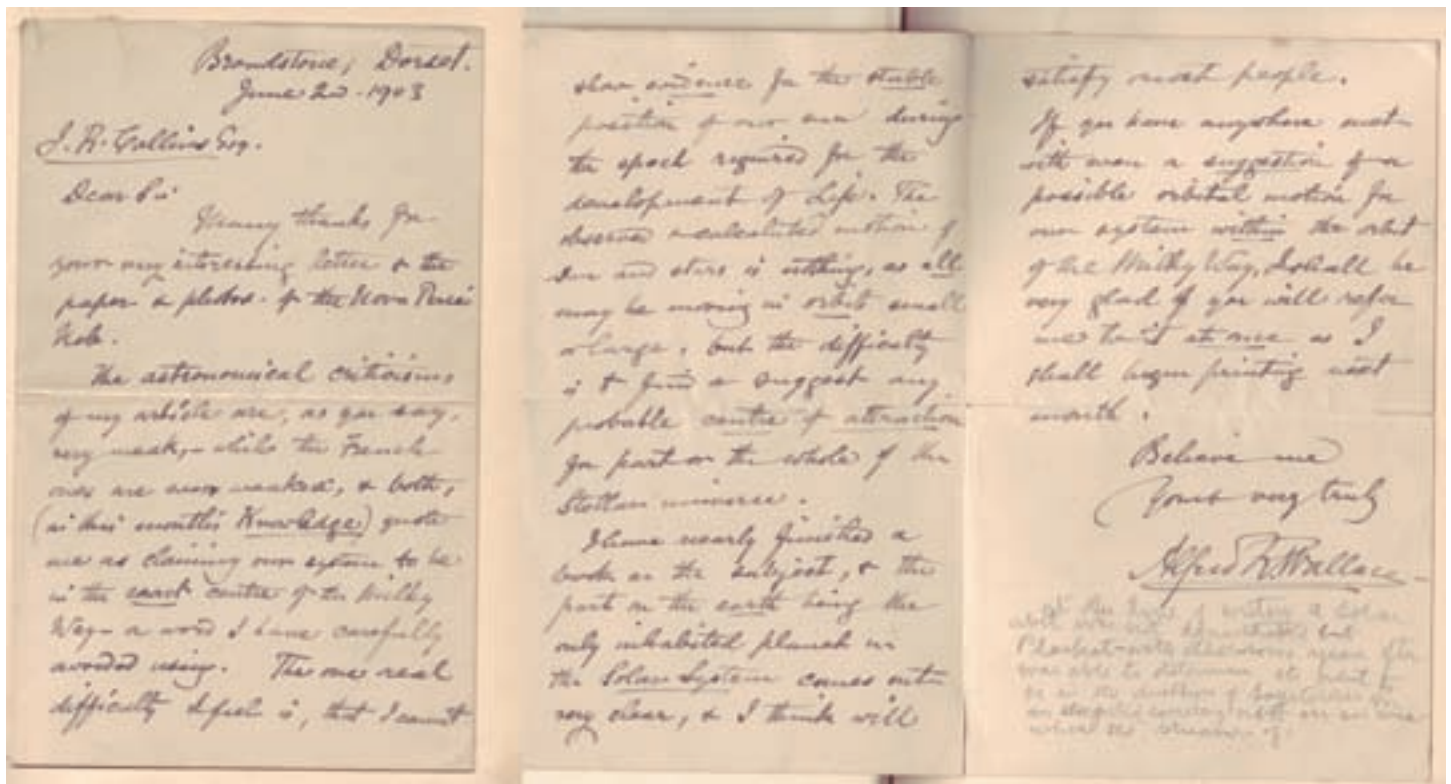 Broadstone, Dorset.
June 2nd. 1903
J. R. Collins Esq.
Dear Sir
Many thanks for
your very interesting letter & the
paper & photos. of the Nova Persei
Neb.
The astronomical criticisms
of my article are, as you say,
very weak, while the French
ones are even weaker, & both,
(in this month's Knowledge) quote
me as claiming our system to be
in the exact centre of the Milky
Way – a word I have carefully
avoided using. The one real
difficulty I feel is, that I cannot
show evidence for the stable
position of our sun during
the epoch required for the
development of Life. The
observed & calculated motion of
Sun and stars is nothing, as all
may be moving in orbits small
or large, but the difficulty
is to find or suggest any
probable centre of attraction
for part or the whole of the
Stellar universe.
I have nearly finished a
book on the subject, & the
part on the earth being the
only inhabited planet in
the Solar System comes out
very clear, & I think will
satisfy most people.
If you have anywhere met
with even a suggestion of a
possible orbital motion for
our system within the orbit
of the Milky Way, I shall be
very glad if you will refer
me to it at once as I
shall begin printing next
month.
Believe me
Yours very truly
Alfred R. Wallace
At the time of writing a
Plaskett
was able to determine it
in the